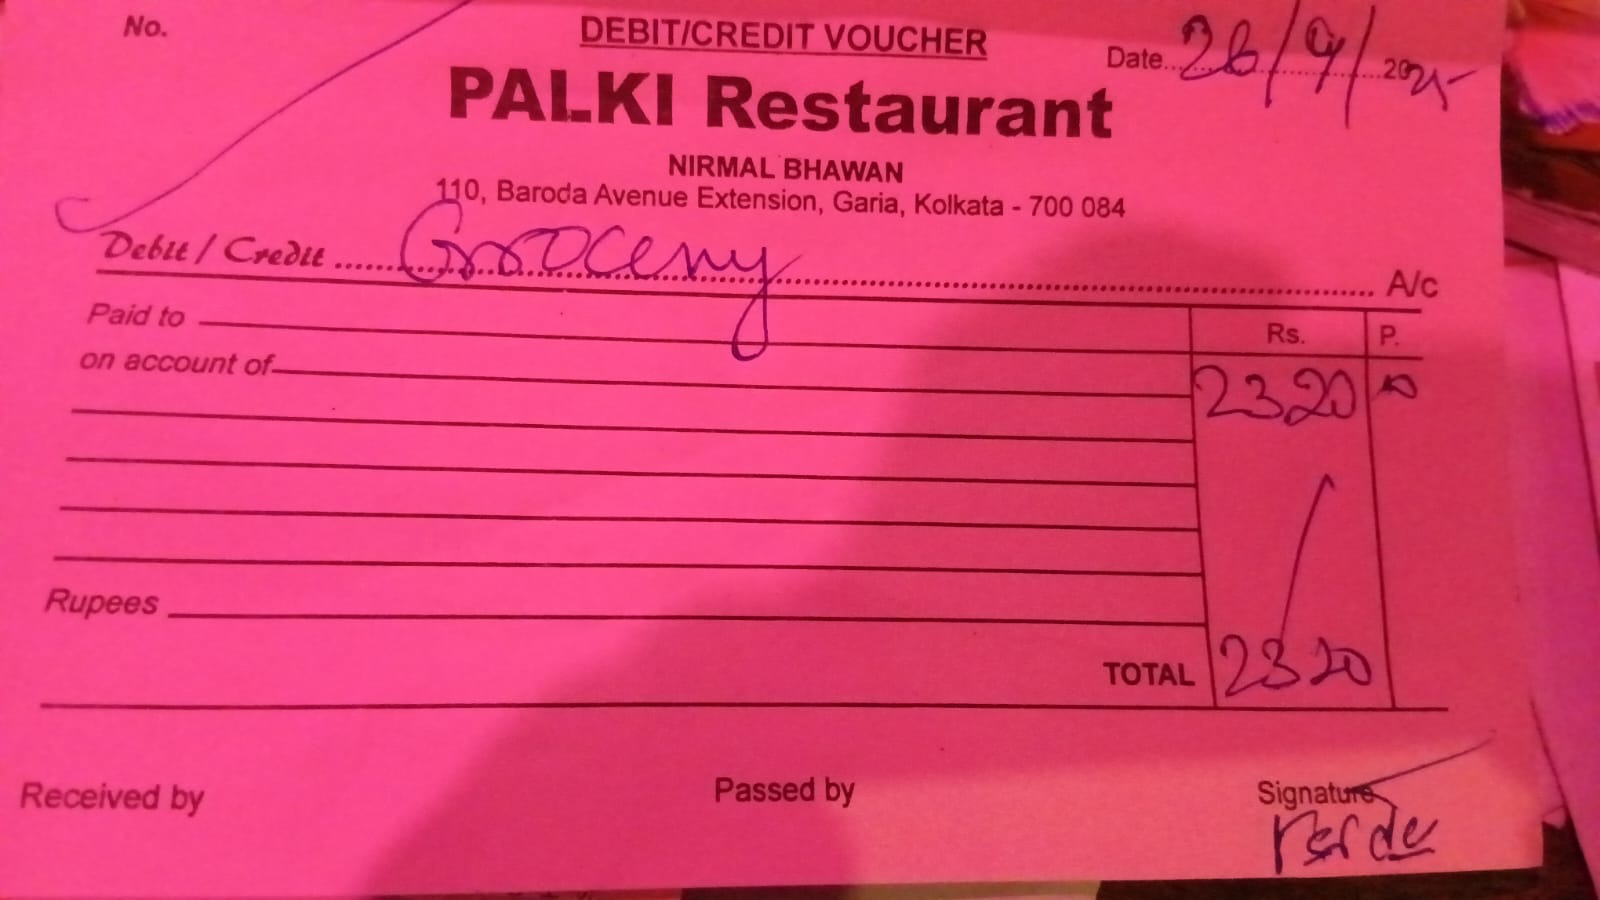 No.
DEBIT/CREDIT VOUCHER
Date 26/9/2025
PALKI Restaurant
NIRMAL BHAWAN
110, Baroda Avenue Extension, Garia, Kolkata - 700 084
Debit / Credit Grocery A/c
Paid to
Rs. P.
on account of
2320
Rupees
TOTAL 2320
Received by
Passed by
Signature